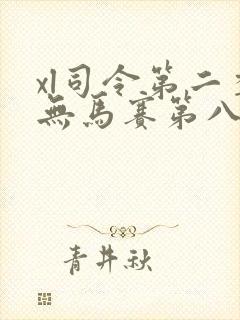 xl司令第二季
無馬賽第八
青井秋